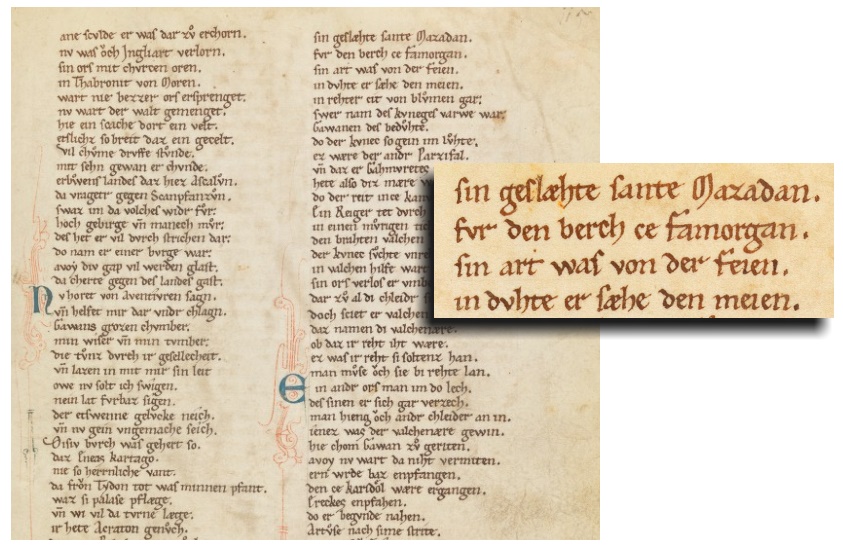 ane scvlde er was dar zů erchorn.
nv was ǒch Jngliart verlorn.
sin ors mit chvrcen oren.
in Thabronit von Moren.
wart nie bezzer ors ersprenget.
nv wart der walt gemenget.
hie ein scache dort ein velt.
etslichz so breit daz ein gecelt.
vil chvme drvffe stvnde.
mit sehn gewan er chvnde.
erbvwens landes daz hiez Ascalvn.
da vragetr gegen Scanpfanzvn.
swaz im da volches widr fvr.
hoch gebirge vn̄ manech mvr.
des het er vil dvrch strichen dar.
do nam er einer bvrge war.
avoy div gap vil werden glast.
da cherte gegen des landes gast.
Nv horet von aventivren sagn.
vn̄ helfet mir dar vndr chlagn.
Gawans grozen chvmber.
min wiser vn̄ min tvmber.
die tvnz dvrch ir gesellecheit.
vn̄ lazen in mit mir sin leit
owe nv solt ich swigen.
nein lat fvrbaz sigen.
der etswenne gelvcke neich.
vn̄ nv gein vngemache seich.
Disiv bvrch was gehert so.
daz Eneas kartago.
nie so herrenliche vant.
da frǒn Tydon tot was minnen pfant.
waz si palase pflæge.
vn̄ wi vil da tvrne læge.
ir hete Acraton genvch.
sin geslæhte sante Mazadan.
fvr den berch ce famorgan.
sin art was von der feien.
in dvhte er sæhe den meien.
in rehter cit von blvmen gar.
swer nam des kvneges varwe war.
Gawanen des bedvhte.
do der kvnec so gein im lvhte.
ez wære der andr Parzifal.
vn̄ daz er Gahmvretes
hete also diz mære
do der reit ince
Ein Reiger tet dvrch
in einen mvrigen
den brahten valchen
der kvnec svchte vnre
in valchen hilfe wart
sin ors verlos er
dar zů al di chleidr
doch sciet er valchen
daz namen di valchenære.
ob daz ir reht iht wære.
ez was ir reht si soltenz han.
man mvse ǒch sie bi rehte lan.
Ein andr ors man im do lech.
des sinen er sich gar verzech.
man hieng ǒch andr chleider an in.
ienez was der valchenære gewin.
hie chom Gawan zů geriten.
avoy nv wart da niht vermiten.
ern wrde baz enpfangen.
den ce karidol wært ergangen.
Ereckes enpfahen.
do er begvnde nahen.
Artvse nach sime strite.
sin geslæhte sante Mazadan.
fvr den berch ce famorgan.
sin art was von der feien.
in dvhte er sæhe den meien.